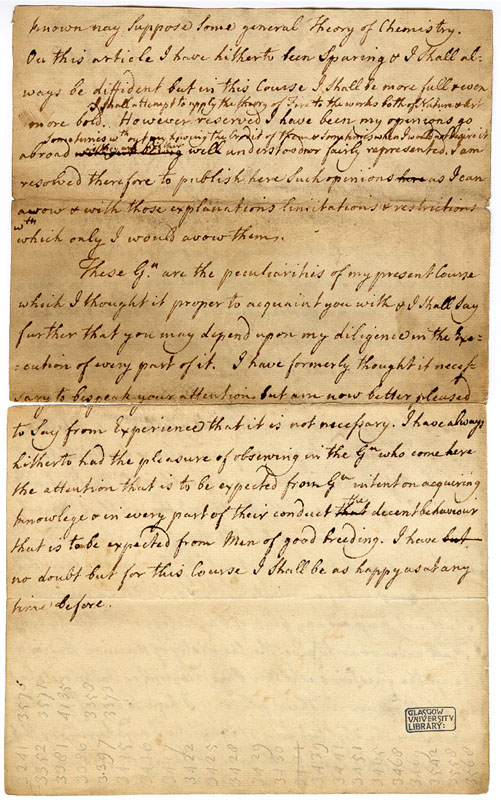 known nay Suppose Some general Theory of Chemistry.
On this article I have hitherto been Sparing & I Shall al-
ways be diffident but in this Course I Shall be more full & even
I shall attempt to apply the theory of Fire to the works both of Nature & Art
more bold. However reserved I have been my opinions go
sometimes wth out my having the Credit of them & sometimes when I would not desire it
abroad without being well understood or fairly represented. I am
resolved therefore to publish here Such opinions here as I can
avow & with those explanations limitations & restrictions
wth
which only I would avow them.
These Gn. are the peculiarities of my present Course
which I thought it proper to acquaint you with & I Shall Say
further that you may depend upon my diligence in the Exe-
-cution of every part of it. I have formerly thought it neces-
sary to bespeak your attention but am now better pleased
to Say from Experience that it is not necessary. I have always
hitherto had the pleasure of observing in the Gn who come here
the attention that is to be expected from Gn intent on acquiring
knowlege & in every part of their conduct that the decent behaviour
that is to be expected from Men of good breeding. I have but
no doubt but for this Course I Shall be as happy as at any
time before.
GLASGOW
UNIVERSITY
LIBRARY: